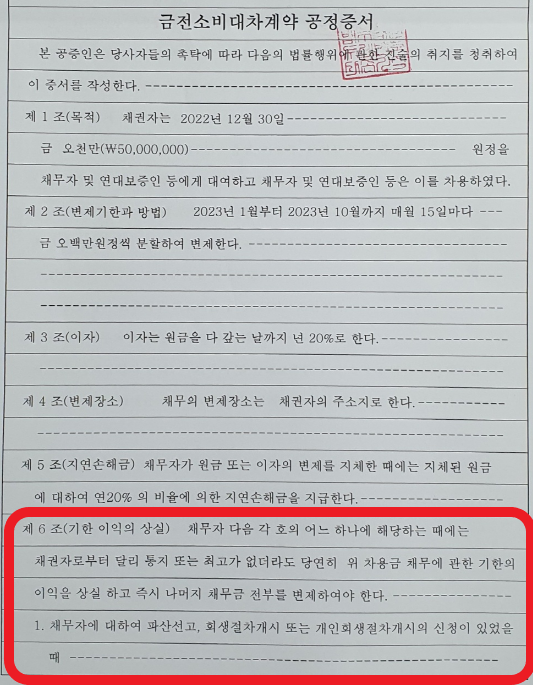 금전소비대차계약 공정증서
본 공증인은 당사자들의 촉탁에 따라 다음의 법률행위에 관한 진술의 취지를 청취하여
이 증서를 작성한다. ------------------------------------------------
제 1 조(목적) 채권자는 2022년 12월 30일----------------------------
금 오천만(₩50,000,000)---------------------------------- 원정을
채무자 및 연대보증인 등에게 대여하고 채무자 및 연대보증인 등은 이를 차용하였다.
제 2 조(변제기한과 방법) 2023년 1월부터 2023년 10월까지 매월 15일마다 ---
금 오백만원정씩 분할하여 변제한다. ----------------------------------
------------------------------------------------------------
------------------------------------------------------------
제 3 조(이자) 이자는 원금을 다 갚는 날까지 년 20%로 한다.----------------
------------------------------------------------------------
제 4 조(변제장소) 채무의 변제장소는 채권자의 주소지로 한다.-----------
------------------------------------------------------------
제 5 조(지연손해금) 채무자가 원금 또는 이자의 변제를 지체한 때에는 지체된 원금
에 대하여 연20% 의 비율에 의한 지연손해금을 지급한다.------------------
제 6 조(기한 이익의 상실) 채무자 다음 각 호의 어느 하나에 해당하는 때에는
채권자로부터 달리 통지 또는 최고가 없더라도 당연히 위 차용금 채무에 관한 기한의
이익을 상실 하고 즉시 나머지 채무금 전부를 변제하여야 한다. ---------------
1. 채무자에 대하여 파산선고, 회생절차개시 또는 개인회생절차개시의 신청이 있었을
때 --------------------------------------------------------